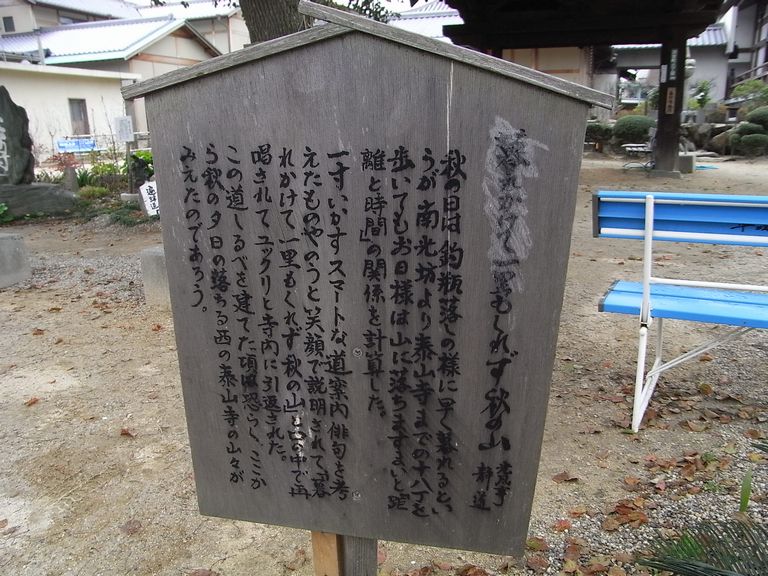 暮れかけて一里もくれず秋の山
静道
秋の日は釣瓶落しの様に早く暮れるとい
うが南光坊より泰山寺までの十八丁を
歩いてもお日様は山に落ちますまいと「距
離と時間」の関係を計算した。
一寸いかすスマートな道案内俳句を考
えたものやのうと笑顔で説明されて「暮
れかけて一里もくれず秋の山」と口の中で再
唱されてユックリと寺内に引返された。
この道しるべを建てた頃は恐らくここか
ら秋の夕日の落ちる西の泰山寺の山々が
みえたのであろう。